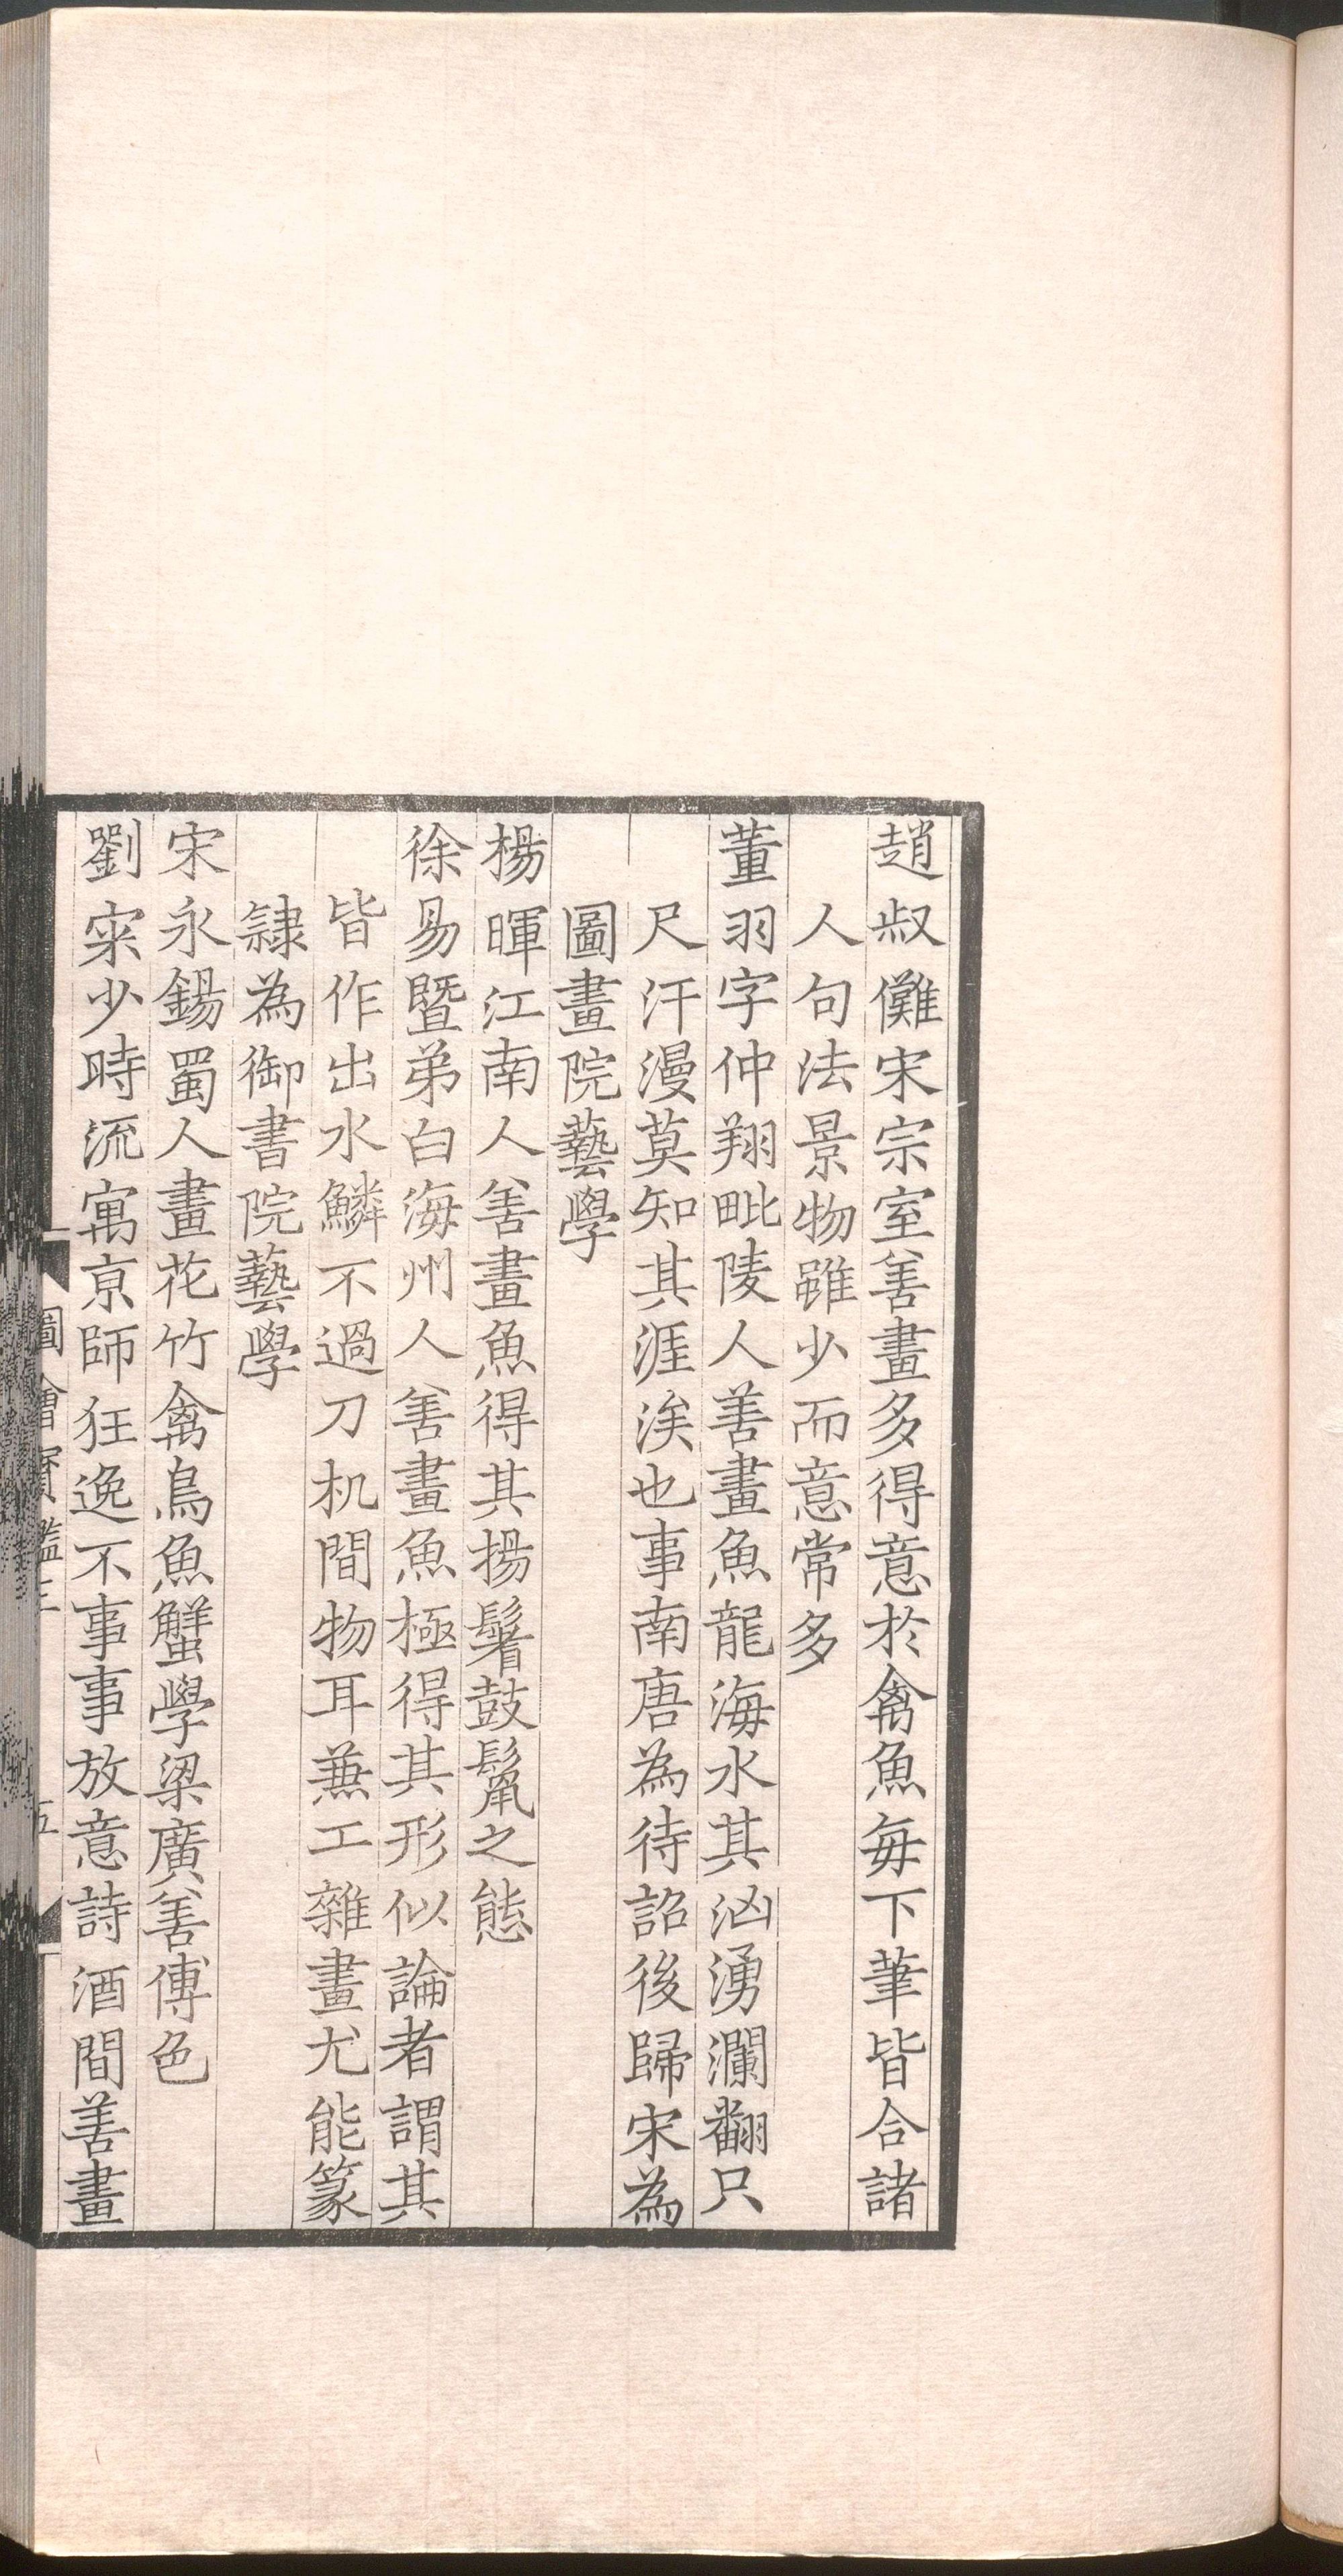 趙叔儺宋宗室善畫多得意於禽魚每下筆皆合諸
人句法景物雖少而意常多
董羽字仲翔毗陵人善畫魚龍海水其洶湧瀾翻只
尺汗漫莫知其涯涘也事南唐為待詔後歸宋為
圖畫院藝學
楊暉江南人善畫魚得其揚鬐鼓鬣之態
徐易暨弟白海州人善畫魚極得其形似論者謂其
皆作出水鱗不過刀机間物耳兼工雜畫尤能篆
隸為御書院藝學
宋永錫蜀人畫花竹禽鳥魚蟹學梁廣善傅色
劉寀少時流寓京師狂逸不事事放意詩酒間善畫
圖會寳鑑三 五